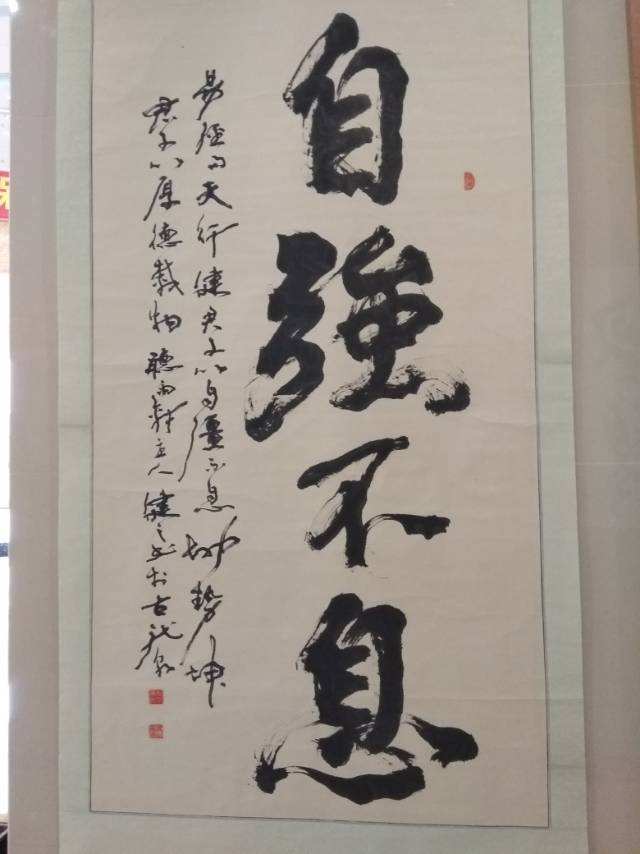 自強不息
易經曰天行健君子以自彊不息地勢坤
君子以厚德載物聽雨軒主人健之書於古